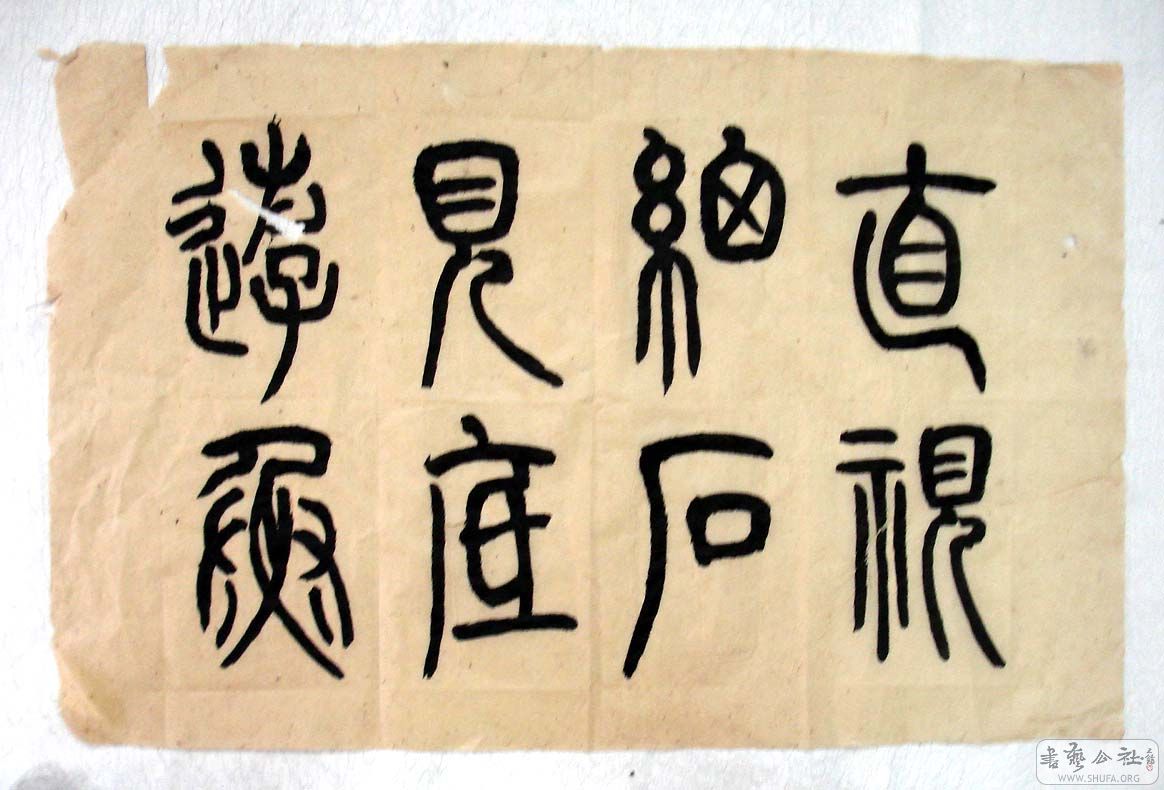 直視
細石
見底
遊魚
書藝公社
WWW.SHUFA.ORG